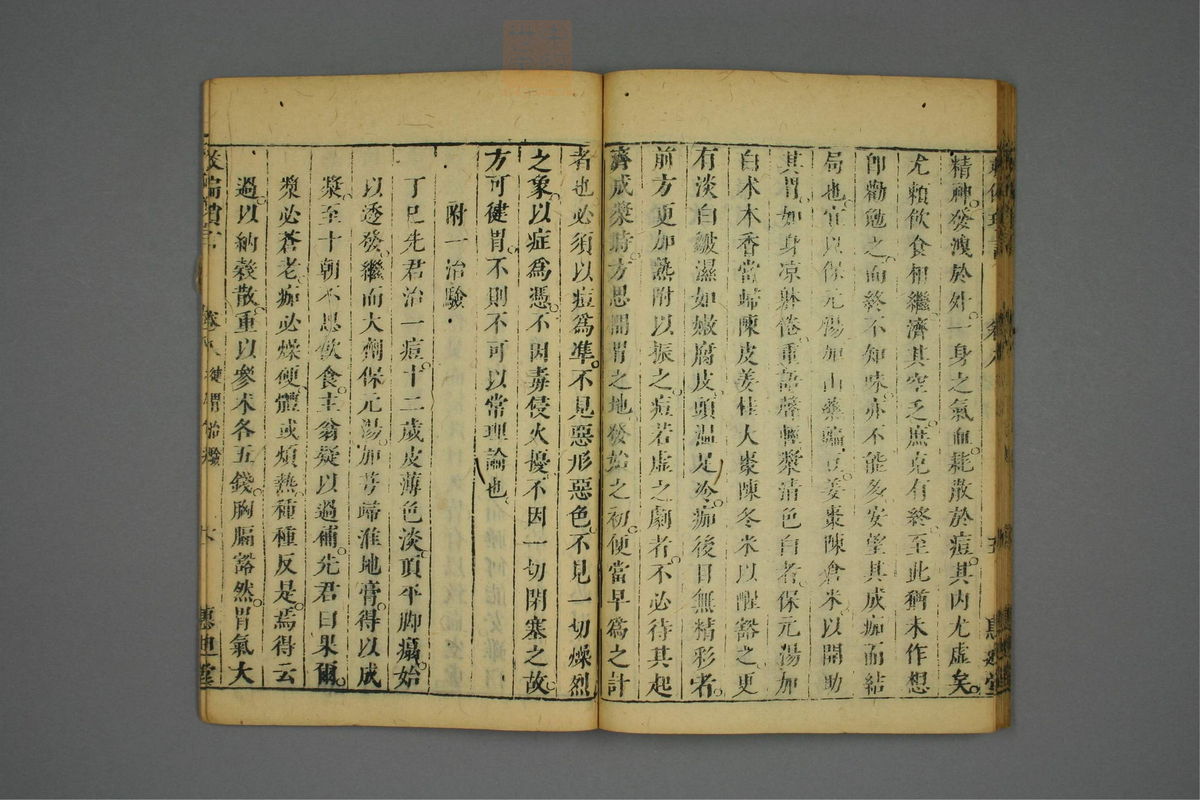 精神。發洩於外。一身之氣血。耗散於痘。其內尤虛矣。
尤賴飲食相繼濟其空乏。庶克有終。至此猶未作想
卽勸勉之。而終不知味。亦不能多安望其成痂而結
局也。宜以保元湯加山藥。姜棗陳倉米。以開助
其胃。如身凉躰倦。重語聲輕漿清色白者。保元湯加
白术木香當歸陳皮姜桂大棗陳冬米以醒豁之。更
有淡白皺濕如嫩腐皮。頭温足冷。痂後目無精彩者。
前方更加熟附以振之。痘若虛之劇者。不必待其起
齊成漿時。方思開胃之地。發始之初。便當早爲之計
者也必須以痘爲凖。不見惡形惡色。不見一切燥烈
之象。以症爲憑。不因毒侵火擾。不因一切閉塞之故。
方可健胃。不則不可以常理論也。
附一治驗
丁巳先君治一痘。十二歲皮薄色淡。頂平脚癟。始
以透發。繼而大劑保元湯。加芎歸淮地膏。得以成
漿。至十朝不思飲食。主翁疑以過補。先君曰果爾。
漿必蒼老。痂必燥便。體或煩熱。種種反是。焉得云
過。以納穀散。重以參术各五錢。胸膈豁然。胃氣大
卷八
健胃治驗
惠迪堂